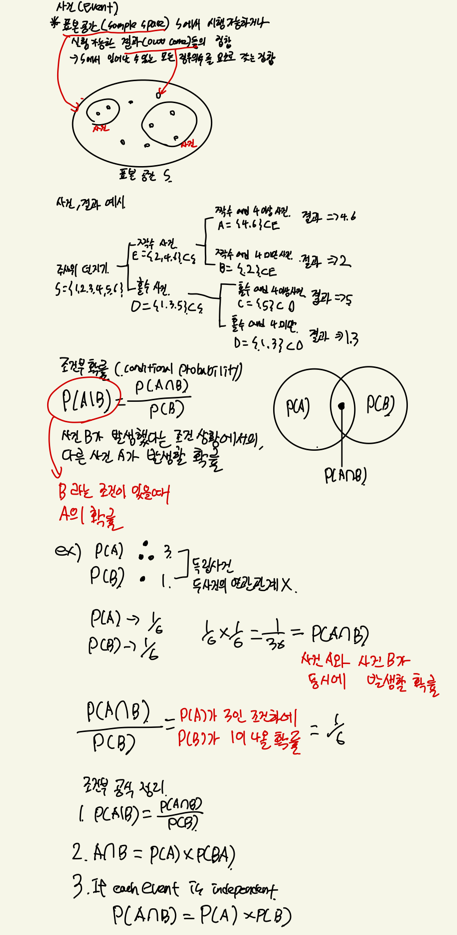 사건(event)
* 표본공간(sample space) S에서 시행 가능하거나
시행 가능한 결과(out come)들의 집합
→ S에서 일어날 수 있는 모든 경우의수를 요소로 갖는 집합
사건
사건
표본 공간 S.
사건, 결과 예시
주사위 던지기
S={1,2,3,4,5,6}
짝수 사건
E={2,4,6}⊂S
홀수 사건
O={1.3.5}⊂S
짝수 이면 4이상 사건
A={4.6}⊂E
결과 => 4.6
짝수 이면 4미만 사건
B={.2}⊂E
결과 => 2
홀수 이면 4이상사건
C={5}⊂O
결과 => 5
홀수 이면 4미만.
D={.1.3}⊂O
결과 => 1.3
조건부 확률 (.conditional probability)
P(A|B) = P(A∩B) / P(B)
사건 B가 발생했다는 조건 상황에서의,
다른 사건 A가 발생할 확률
B 라는 조건이 있을때
A의 확률
P(A)
P(B)
P(A∩B)
ex) P(A) 3.
P(B) 1.
독립사건
두사건의 연관관계X.
P(A) → 1/6
P(B) → 1/6
1/6 × 1/6 = 1/36 = P(A∩B)
사건 A와 사건 B가
동시에 발생할 확률
P(A∩B) / P(B) = P(A)가 3인 조건하에 P(B)가 1이 나올 확률 = 1/6
조건부 공식 정리.
1. P(A|B) = P(A∩B) / P(B)
2. A∩B = P(A) × P(BA)
3. If each event is independent.
P(A∩B) = P(A) × P(B)